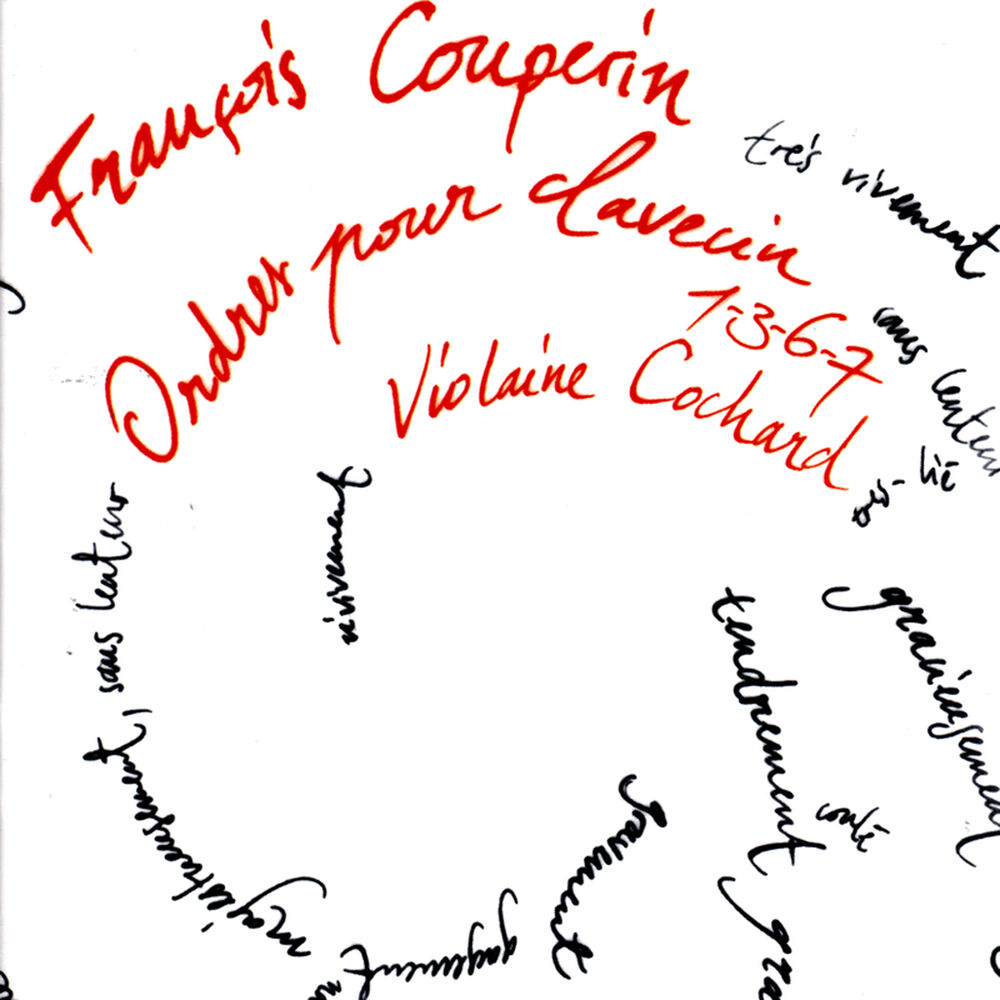 François Couperin
Ordres pour clavecin
1-3-6-7
Violaine Cochard
très vivement
sans lenteur
lié
sans lenteur
vivement
tendrement
gracieusement
coulé
majestueusement,
gayement
gravement
gra